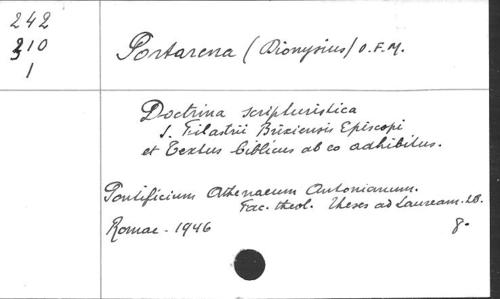 242
310
1
Portarena (Dionysius) O.F.M.
Doctrina scripturistica
S. Filastrii Brixiensis Episcopi
et Textus Biblicus ab eo adhibitus.
Pontificium Athenaeum Antonianum.
Fac. theol. Theses ad Lauream.
Romae - 1946 8.